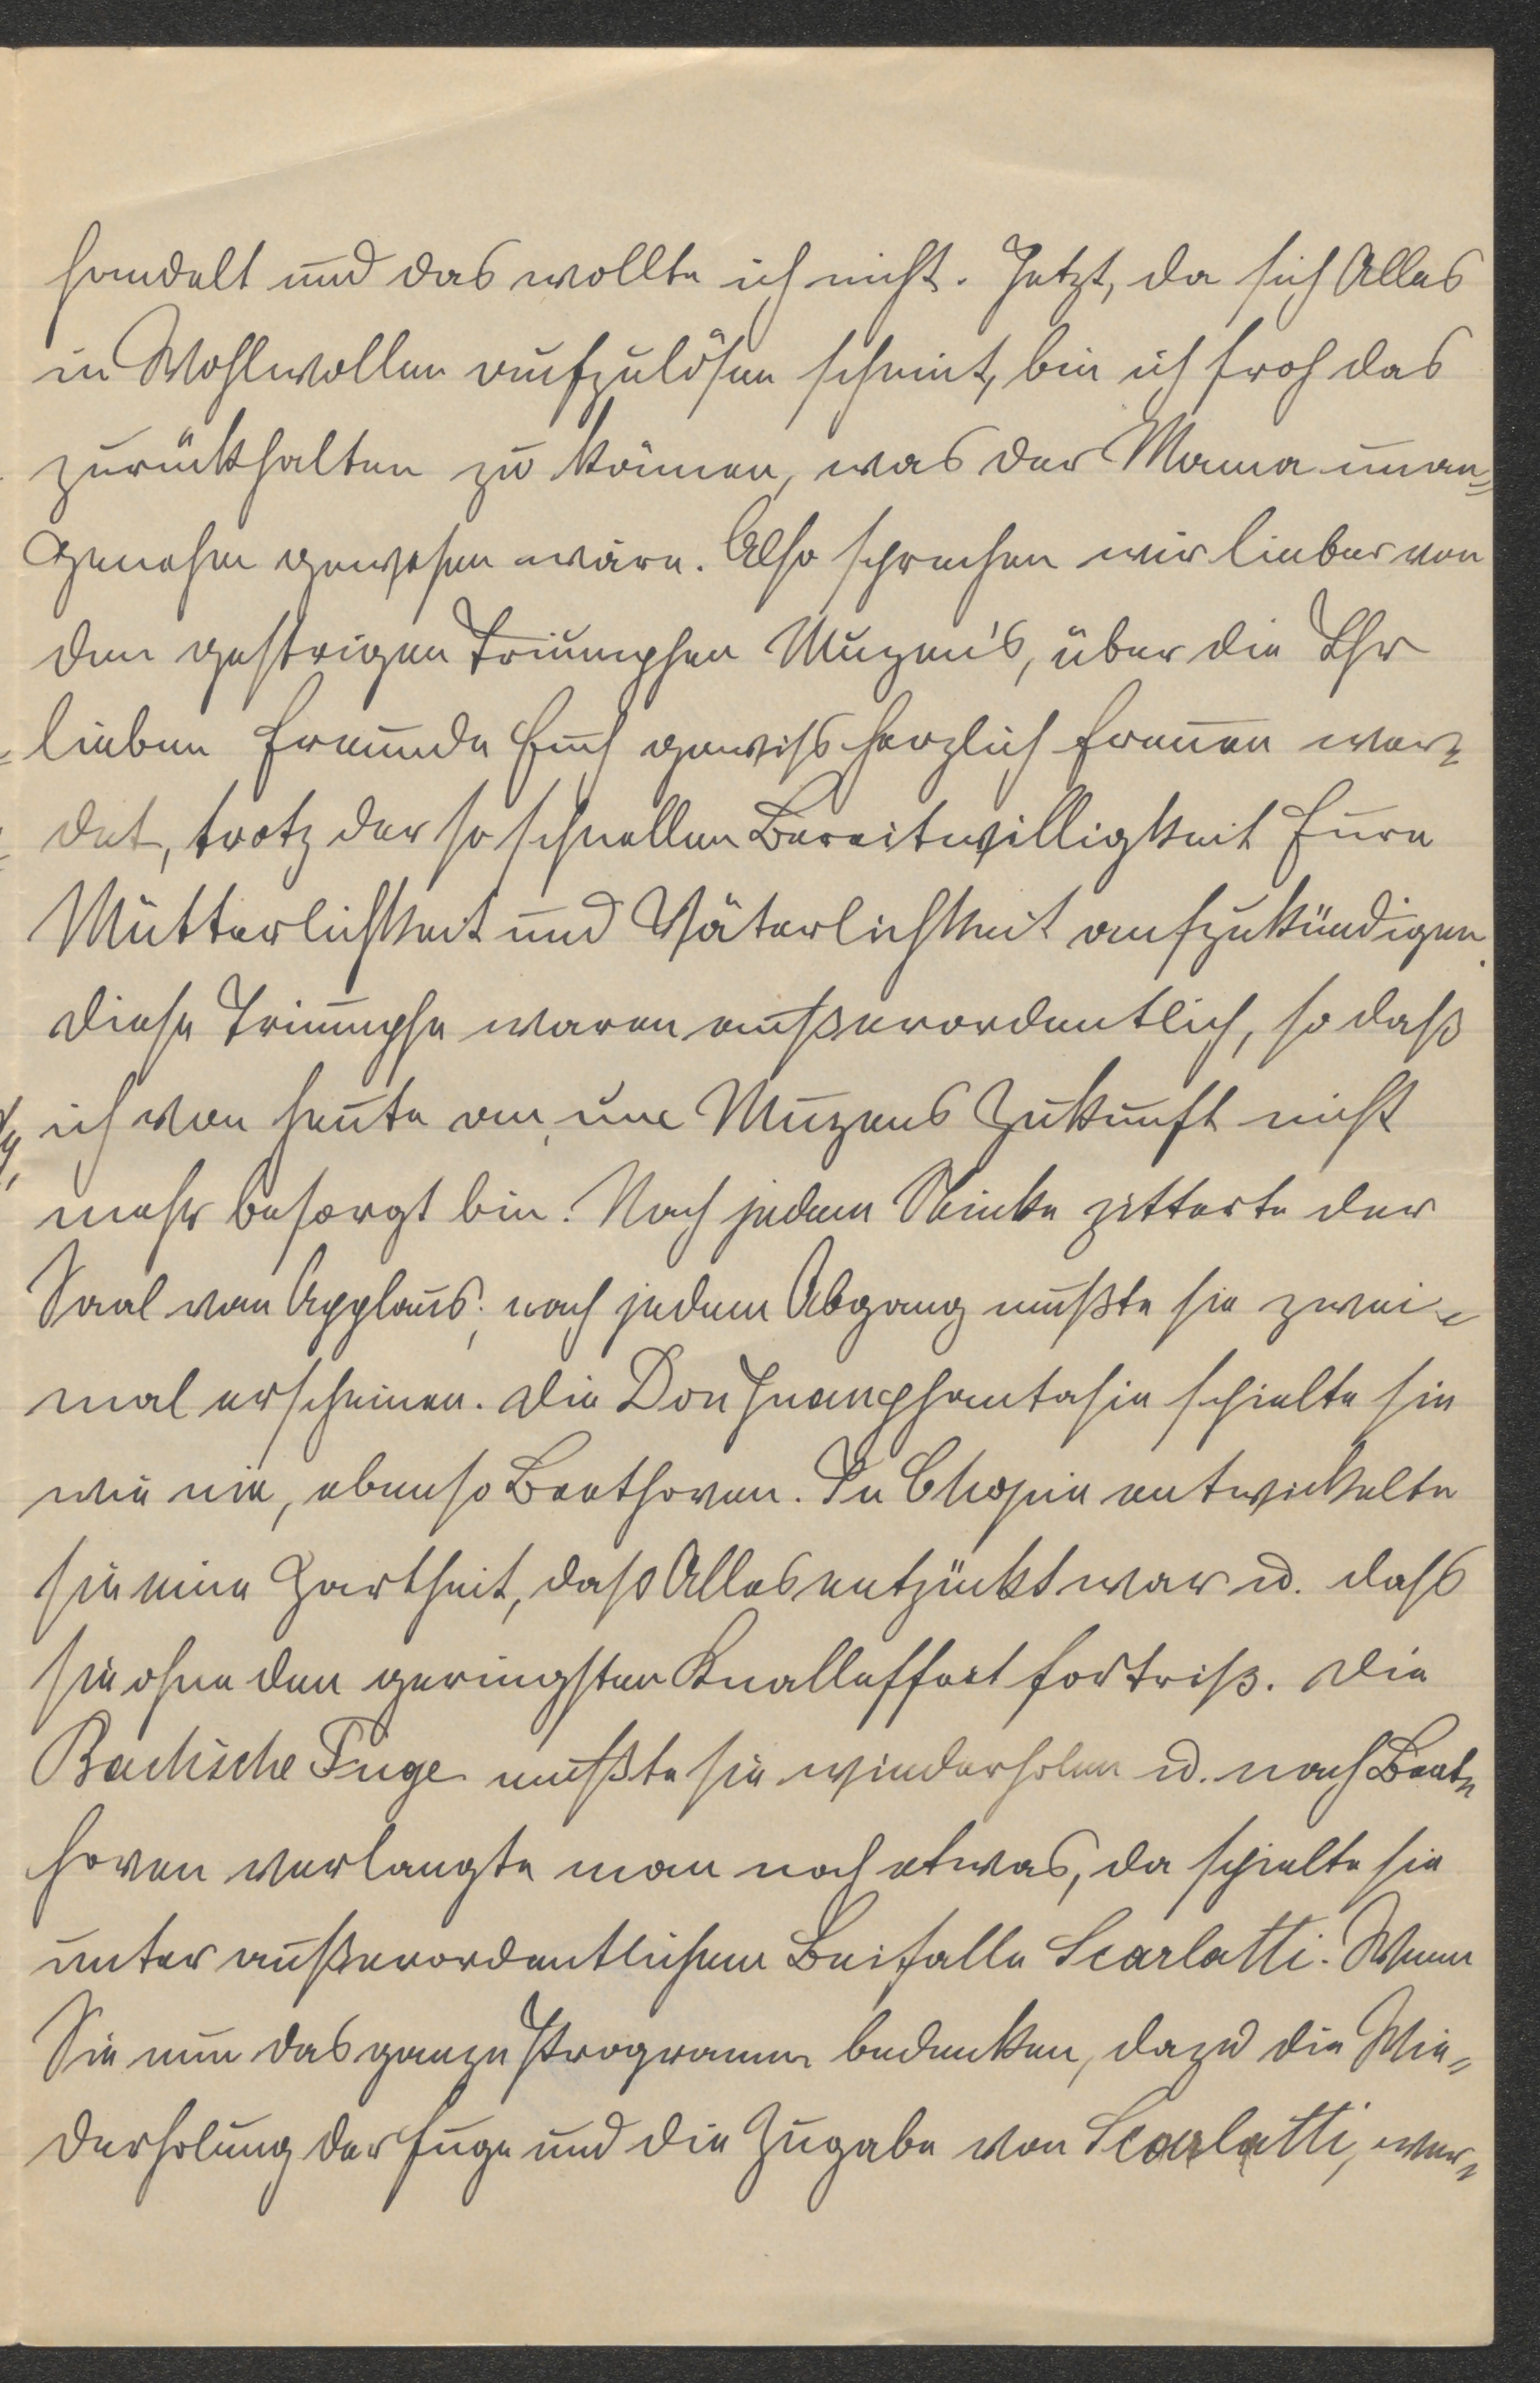 handelt und das wollte ich nicht. Jetzt, da sich Alles
in Wohlwollen aufzulösen scheint, bin ich froh das
zurückhalten zu können, was der Mama unan=
genehm gewesen wäre. Also sprechen wir lieber von
den gestrigen Triumphen Muzen's, über die Ihr
lieben Freunde Euch gewiss herzlich freuen wer=
det, trotz der so schnellen Bereitwilligkeit Eure
Mütterlichkeit und Väterlichkeit aufzukündigen.
Diese Triumphe waren außerordentlich, so daß
ich von heute an, um Muzens Zukunft nicht
mehr besorgt bin. Nach jedem Stücke zitterte der
Saal von Applaus; nach jedem Abgang mußte sie zwei=
mal erscheinen. Die Don Juanphantasie spielte sie
wie nie, ebenso Beethoven. In Chopin entwickelte
sie eine Zartheit, dass Alles entzückt war u. dass
sie ohne den geringsten Knalleffect fortriß. Die
Bachische Fuge mußte sie wiederholen u. nach Beet=
hoven verlangte man noch etwas, da spielte sie
unter außerordentlichem Beifalle Scarlatti. Wenn
Sie nun das ganze Programm bedenken, dazu die Wie=
derholung der Fuge und die Zugabe von Scarlatti, wer=